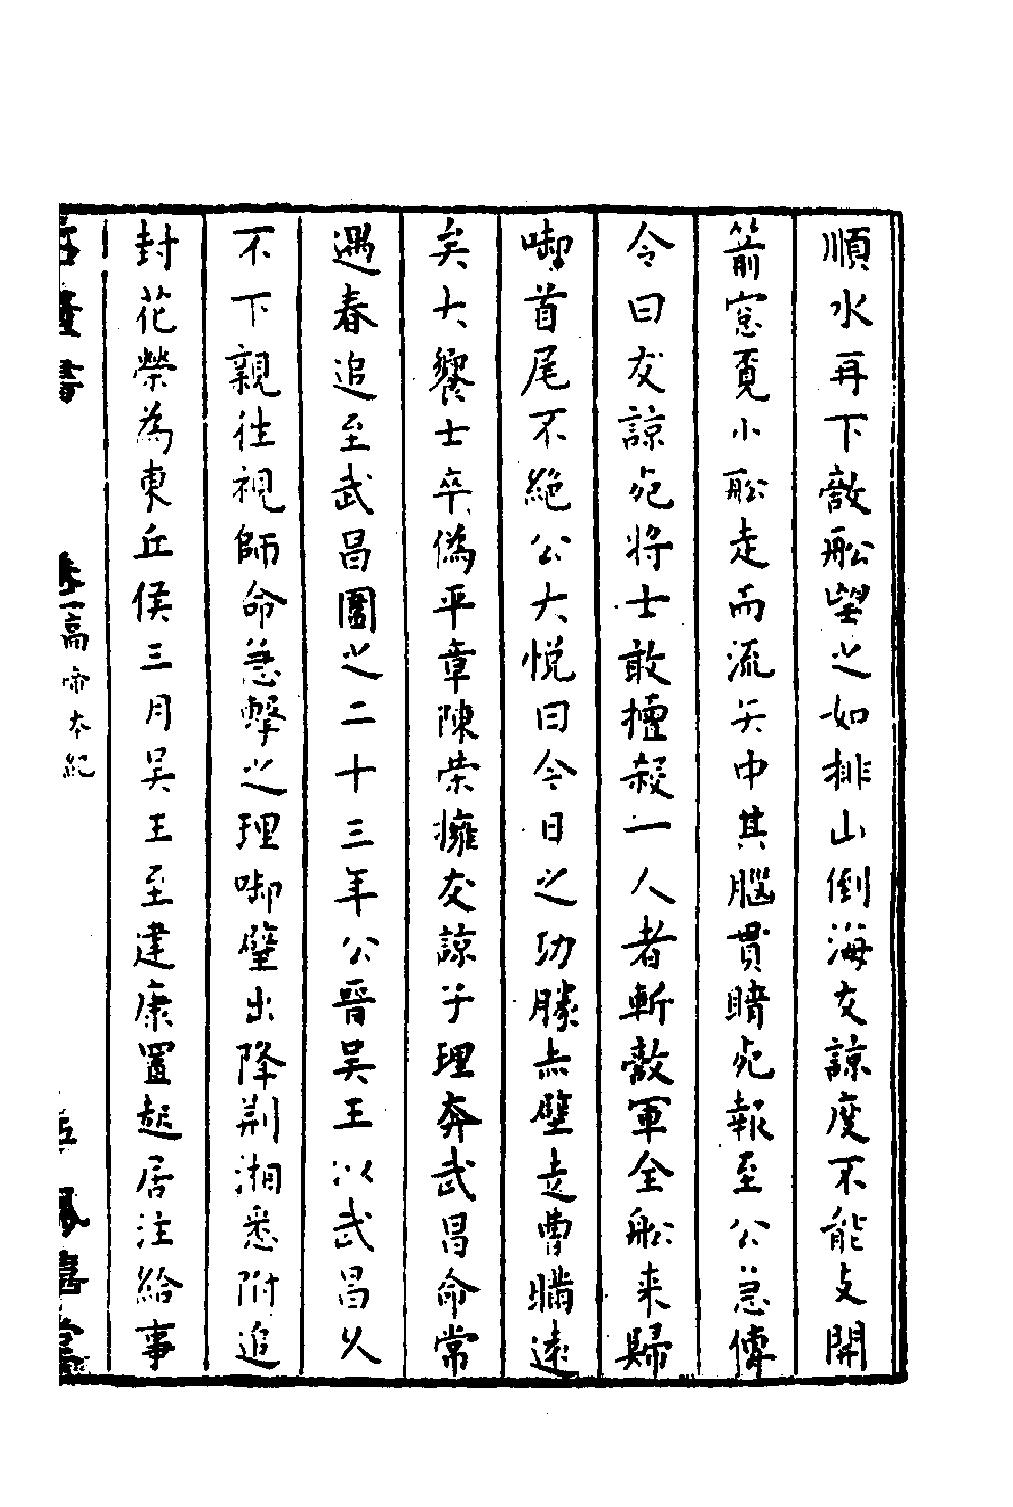 順水再下敵舩望之如排山倒海友諒度不能支開
箭窓覔小舩走而流矢中其腦貫睛死報至公急傳
令曰友諒死將士敢擅殺一人者斬敵軍全舩来歸
啣首尾不絕公大悅曰今日之功勝赤壁走曹瞞遠
矣大饗士卒偽平章陳荣擁友諒子理奔武昌命常
遇春追至武昌圍之二十三年公晉吳王以武昌久
不下親往視師命急擊之理啣璧出降荆湘悉附追
封花榮為東丘侯三月吳王至建康置起居注給事
石匱書 卷一高帝本紀 鳳嬉堂